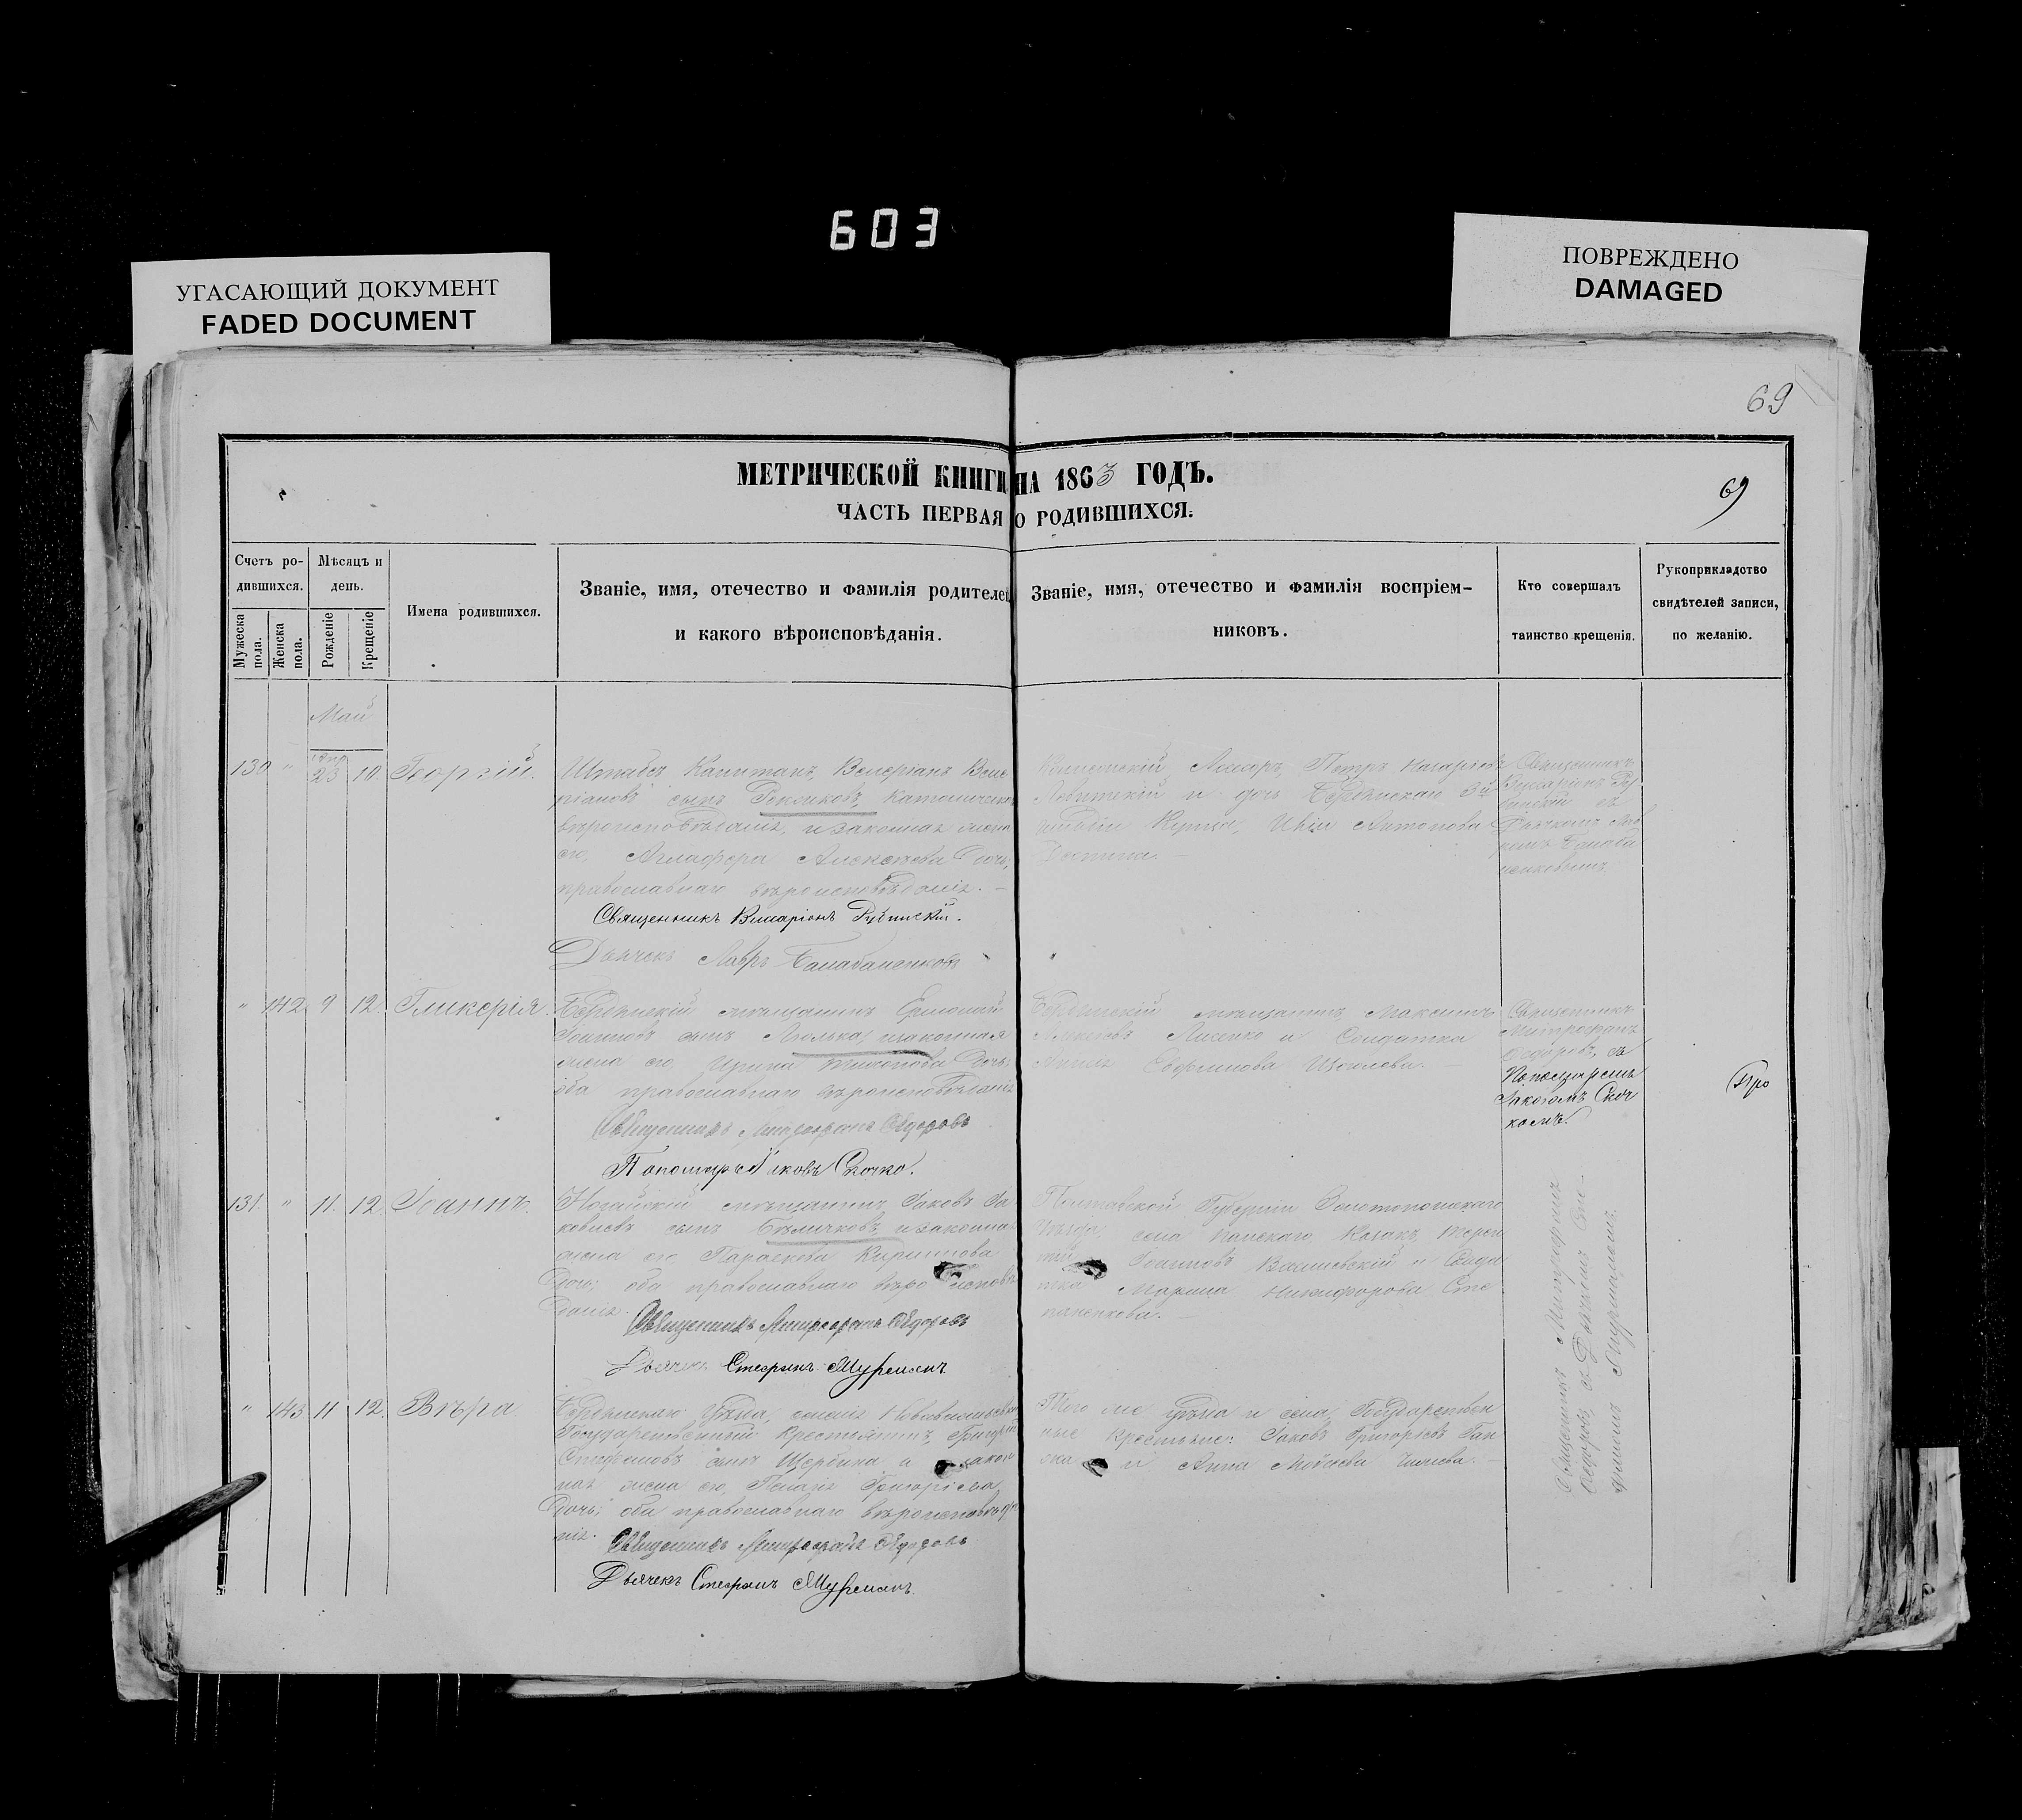 603
УГАСАЮЩИЙ ДОКУМЕНТ
FADED DOCUMENT
ПОВРЕЖДЕНО
DAMAGED
69
МЕТРИЧЕСКОЙ КНИГИ НА 1863 ГОДЪ.
69
ЧАСТЬ ПЕРВАЯ О РОДИВШИХСЯ.
Счетъ ро-
дившихся.
Мужеска
пола.
Женска
пола.
Мѣсяцъ и
день.
Рожденіе
Крещеніе
Имена родившихся.
Званіе, имя, отечество и фамилія родителей
и какого вѣроисповѣданія.
Званіе, имя, отечество и фамилія воспріем-
никовъ.
Кто совершалъ
таинство крещенія.
Рукоприкладство
свидѣтелей записи,
по желанію.
Май
130 " 23 10 Георгій.
Штабсъ Капитанъ, Велеріанъ Веле
ріановъ сынъ католическ
вѣроисповѣданія, и законная жена
его, Аглафера Алексѣева дочь,
православнаго вѣроисповѣданія. —
Священникъ Виларіонъ
Дьячекъ Лавръ Балабаненковъ
Лекарь, Петръ Назаріевъ
Левитскій и дочь Бердянскаго 3й
гильдіи Купца, Антонова
Священникъ
" 142 9 12 Гликерія.
Бердянскій мѣщанинъ Ермолай
Іоанновъ сынъ Люлька, и законная
жена его Ирина Тихонова дочь,
оба православнаго вѣроисповѣданія
Священникъ Митрофанъ Ѳедоровъ
Пономарь Яковъ Скочко.
Бердянскій мѣщанинъ Максимъ
Алексѣевъ Лисенко и Солдатка
Евфимова Щоголева. —
Священникъ
Митрофанъ
Ѳедоровъ, съ
Пономаремъ
Яковомъ Скоч
комъ.
Про
131 " 11 12 Іоаннъ.
Ногайскій мѣщанинъ, Іаковъ Іа
ковлевъ сынъ Бѣличковъ, и законная
жена его Параскева Кириллова
дочь; оба православнаго вѣроисповѣ
данія.
Священникъ Митрофанъ Ѳедоровъ
Дьячекъ Стефанъ Муренинъ
Полтавской Губерніи Золотоношскаго
уѣзда, села Панскаго Козакъ, Терен
тій Іоанновъ Валиевскій и Солда
тка Марина Никифорова Сте
паненкова. —
" 143 11 12 Вѣра
Бердянскаго Уѣзда, селенія
Государственный Крестьянинъ, Григорій
Стефановъ сынъ Щербина, и закон
ная жена его, Пелагія Григорьева
дочь; оба православнаго вѣроисповѣда
нія.
Священникъ Митрофанъ Ѳедоровъ
Дьячекъ Стефанъ Муренинъ
Того же уѣзда и села, Государствен
ные крестьяне: Іаковъ Григорьевъ Ган
жа и Анна —
Священникъ Митрофанъ
Ѳедоровъ, съ Дьячкомъ Сте-
фаномъ